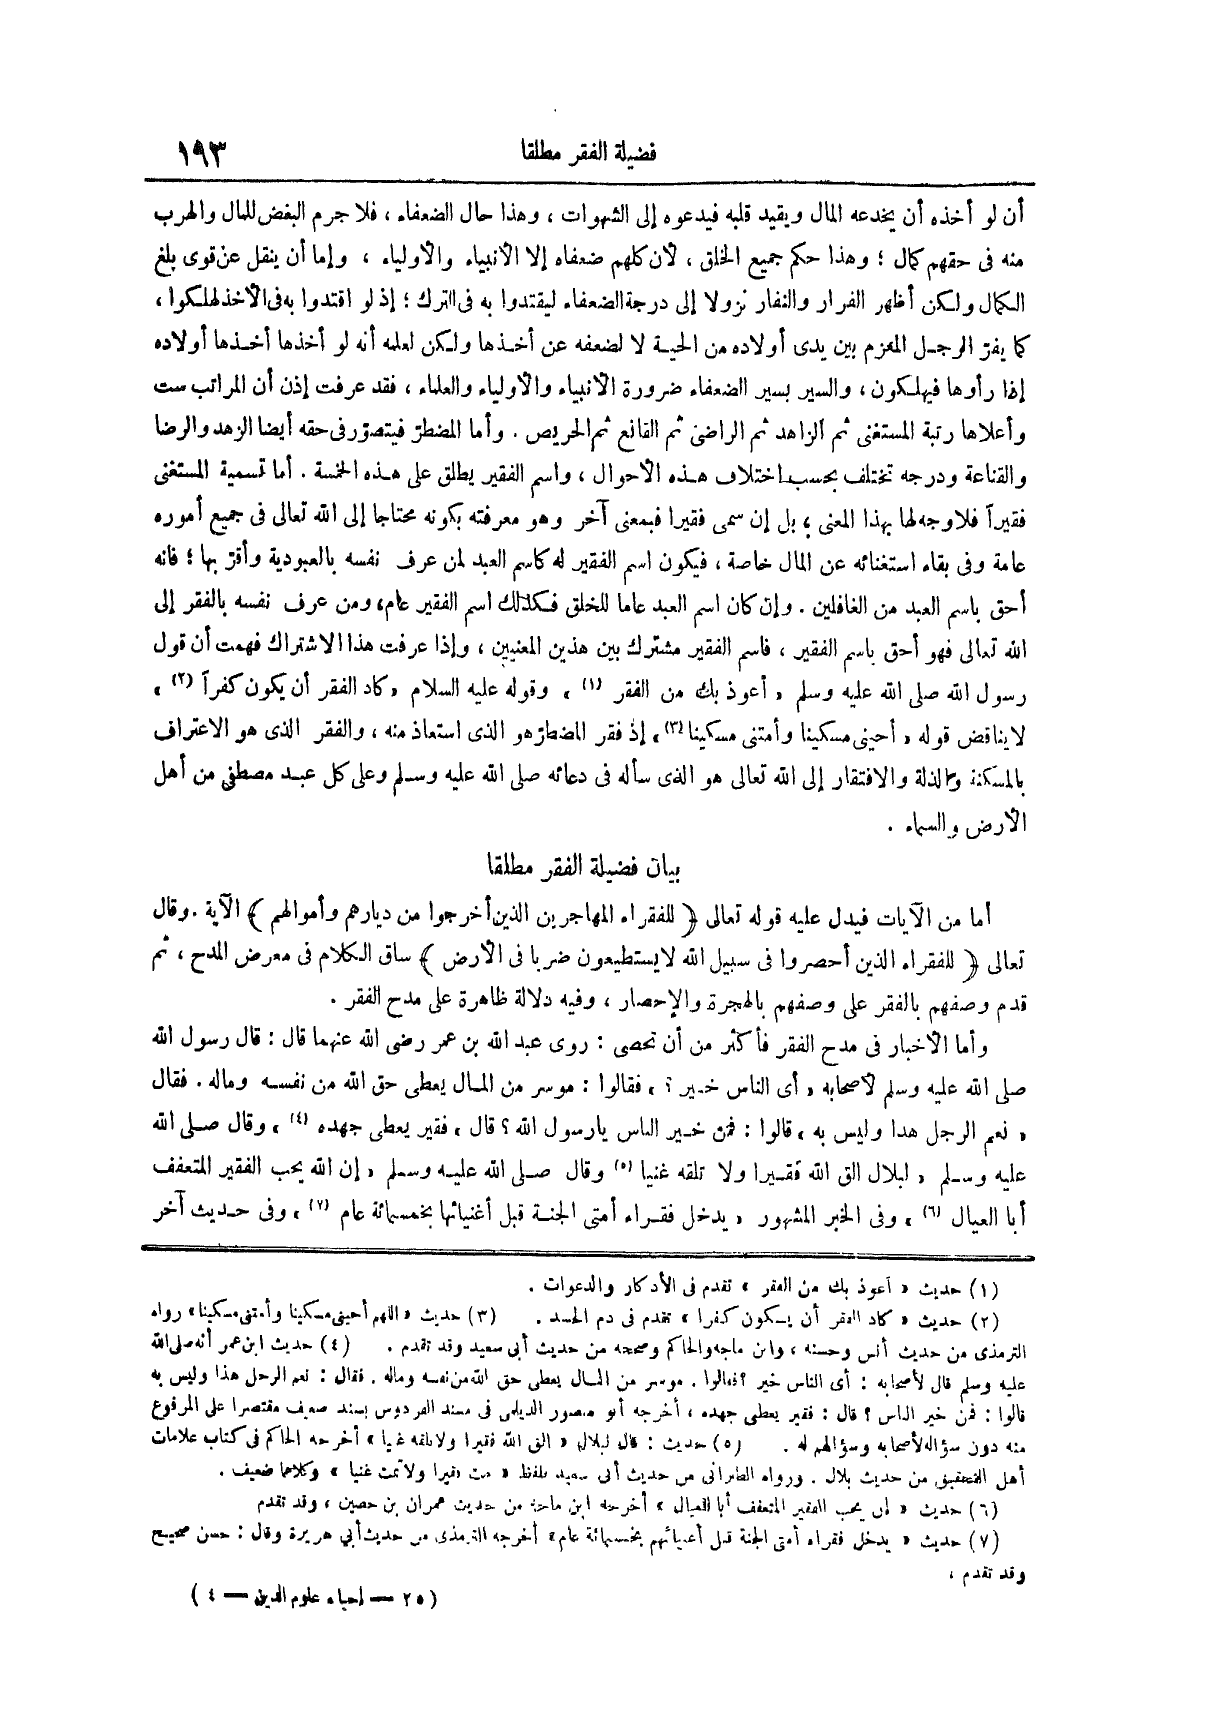 فضيلة الفقر مطلقا ١٩٣
أن لو أخذه أن يخدعه المال ويقيد قلبه فيدعوه إلى الشهوات ، وهذا حال الضعفاء ، فلا جرم البغض للمال والهرب
منه فى حقهم كمال ؛ وهذا حكم جميع الخلق ، لأن كلهم ضعفاء إلا الأنبياء والأولياء ، وإما أن ينقل عن قوى بلغ
الكمال ولكن أظهر الفرار والنفار نزولا إلى درجة الضعفاء ليقتدوا به فى الترك ؛ إذ لو اقتدوا به فى الأخذ لهلكوا ،
كما يفرّ الرجل المعزم بين يدى أولاده من الحية لا لضعفه عن أخذها ولكن لعلمه أنه لو أخذها أخذها أولاده
إذا رأوها فيهلكون ، والسير بسير الضعفاء ضرورة الأنبياء والأولياء والعلماء ، فقد عرفت إذن أن المراتب ست
وأعلاها رتبة المستغنى ثم الزاهد ثم الراضى ثم القانع ثم الحريص . وأما المضطرّ فيتصوّر فى حقه أيضا الزهد والرضا
والقناعة ودرجه تختلف بحسب اختلاف هذه الأحوال ، واسم الفقير يطلق على هذه الخمسة . أما تسمية المستغنى
فقيرا فلا وجه لها بهذا المعنى ؛ بل إن سمى فقيرا فبمعنى آخر وهو معرفته بكونه محتاجا إلى الله تعالى فى جميع أموره
عامة وفى بقاء استغنائه عن المال خاصة ، فيكون اسم الفقير له كاسم العبد لمن عرف نفسه بالعبودية وأقرّ بها ؛ فانه
أحق باسم العبد من الغافلين . وإن كان اسم العبد عاما للخلق فكذلك اسم الفقير عام، ومن عرف نفسه بالفقر إلى
الله تعالى فهو أحق باسم الفقير ، فاسم الفقير مشترك بين هذين المعنيين ، وإذا عرفت هذا الاشتراك فهمت أن قول
رسول الله صلى الله عليه وسلم « أعوذ بك من الفقر (١) » وقوله عليه السلام « كاد الفقر أن يكون كفرا (٢) »
لا يناقض قوله « أحينى مسكينا وأمتنى مسكينا (٣) » إذ فقر المضطرّ هو الذى استعاذ منه ، والفقر الذى هو الاعتراف
بالمسكنة والذلة والافتقار إلى الله تعالى هو الذى سأله فى دعائه صلى الله عليه وسلم وعلى كل عبد مصطفى من أهل
الأرض والسماء .
بيان فضيلة الفقر مطلقا
أما من الآيات فيدل عليه قوله تعالى ﴿ للفقراء المهاجرين الذين أخرجوا من ديارهم وأموالهم ﴾ الآية . وقال
تعالى ﴿ للفقراء الذين أحصروا فى سبيل الله لا يستطيعون ضربا فى الأرض ﴾ ساق الكلام فى معرض المدح ، ثم
قدم وصفهم بالفقر على وصفهم بالهجرة والإحصار ، وفيه دلالة ظاهرة على مدح الفقر .
وأما الأخبار فى مدح الفقر فأكثر من أن تحصى : روى عبد الله بن عمر رضى الله عنهما قال : قال رسول الله
صلى الله عليه وسلم لأصحابه « أى الناس خير ؟ » فقالوا : موسر من المال يعطى حق الله من نفسه وماله . فقال
« نعم الرجل هذا وليس به » قالوا : فمن خير الناس يارسول الله ؟ قال « فقير يعطى جهده (٤) » وقال صلى الله
عليه وسلم « لبلال الق الله فقيرا ولا تلقه غنيا (٥) وقال صلى الله عليه وسلم « إن الله يحب الفقير المتعفف
أبا العيال (٦) » وفى الخبر المشهور « يدخل فقراء أمتى الجنة قبل أغنيائها بخمسمائة عام (٧) » وفى حديث آخر
(١) حديث « أعوذ بك من الفقر » تقدم فى الأذكار والدعوات .
(٢) حديث « كاد الفقر أن يكون كفرا » تقدم فى ذم الحسد . (٣) حديث « اللهم أحينى مسكينا وأمتنى مسكينا » رواه
الترمذى من حديث أنس وحسنه ، وابن ماجه والحاكم وصححه من حديث أبى سعيد وقد تقدم . (٤) حديث ابن عمر أنه صلى الله
عليه وسلم قال لأصحابه : أى الناس خير ؟ فقالوا . موسر من المال يعطى حق الله من نفسه وماله . فقال : نعم الرجل هذا وليس به
قالوا : فمن خير الناس ؟ قال : فقير يعطى جهده ، أخرجه أبو منصور الديلمى فى مسند الفردوس بسند ضعيف مقتصرا على المرفوع
منه دون سؤاله لأصحابه وسؤالهم له . (٥) حديث : قال لبلال « الق الله فقيرا ولا تلقه غنيا » أخرجه الحاكم فى كتاب علامات
أهل التحقيق من حديث بلال . ورواه الطبرانى من حديث أبى سعيد بلفظ « مت فقيرا ولا تمت غنيا » وكلاهما ضعيف .
(٦) حديث « إن يحب الفقير المتعفف أبا العيال » أخرجه ابن ماجه من حديث عمران بن حصين ، وقد تقدم
(٧) حديث « يدخل فقراء أمتى الجنة قبل أغنيائهم بخمسمائة عام » أخرجه الترمذى من حديث أبي هريرة وقال : حسن صحيح
وقد تقدم ،
( ٢٥ — إحياء علوم الدين — ٤ )